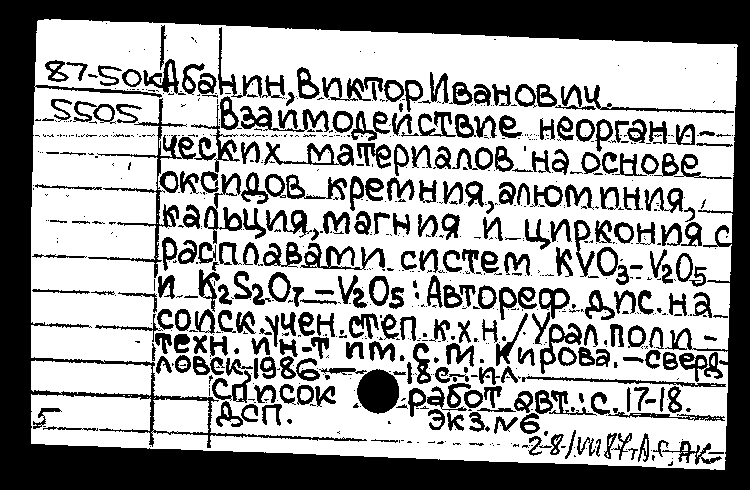 87-50к Абанин, Виктор Иванович.
5505 Взаимодействие неоргани-
ческих материалов на основе
оксидов кремния, алюминия,
кальция, магния и циркония с
расплавами систем KVO3-V2O5
и K2S2O7-V2O5: Автореф. дис. на
соиск. учен. степ. к.х.н. / Урал. поли-
техн. ин-т им. С.М. Кирова. - Сверд-
ловск, 1986. - 18 с.: ил.
Список работ авт.: с. 17-18.
5 ДСП. экз. №6.